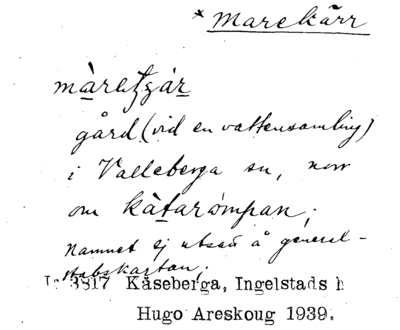 * Marekärr
màrețgár
gård (vid en vattensamling)
i Valleberga sn, norr
om kàtarómpan;
Namnet ej utsatt å general-
stabskartan;
3817 Kåseberga, Ingelstads h
Hugo Areskoug 1939.